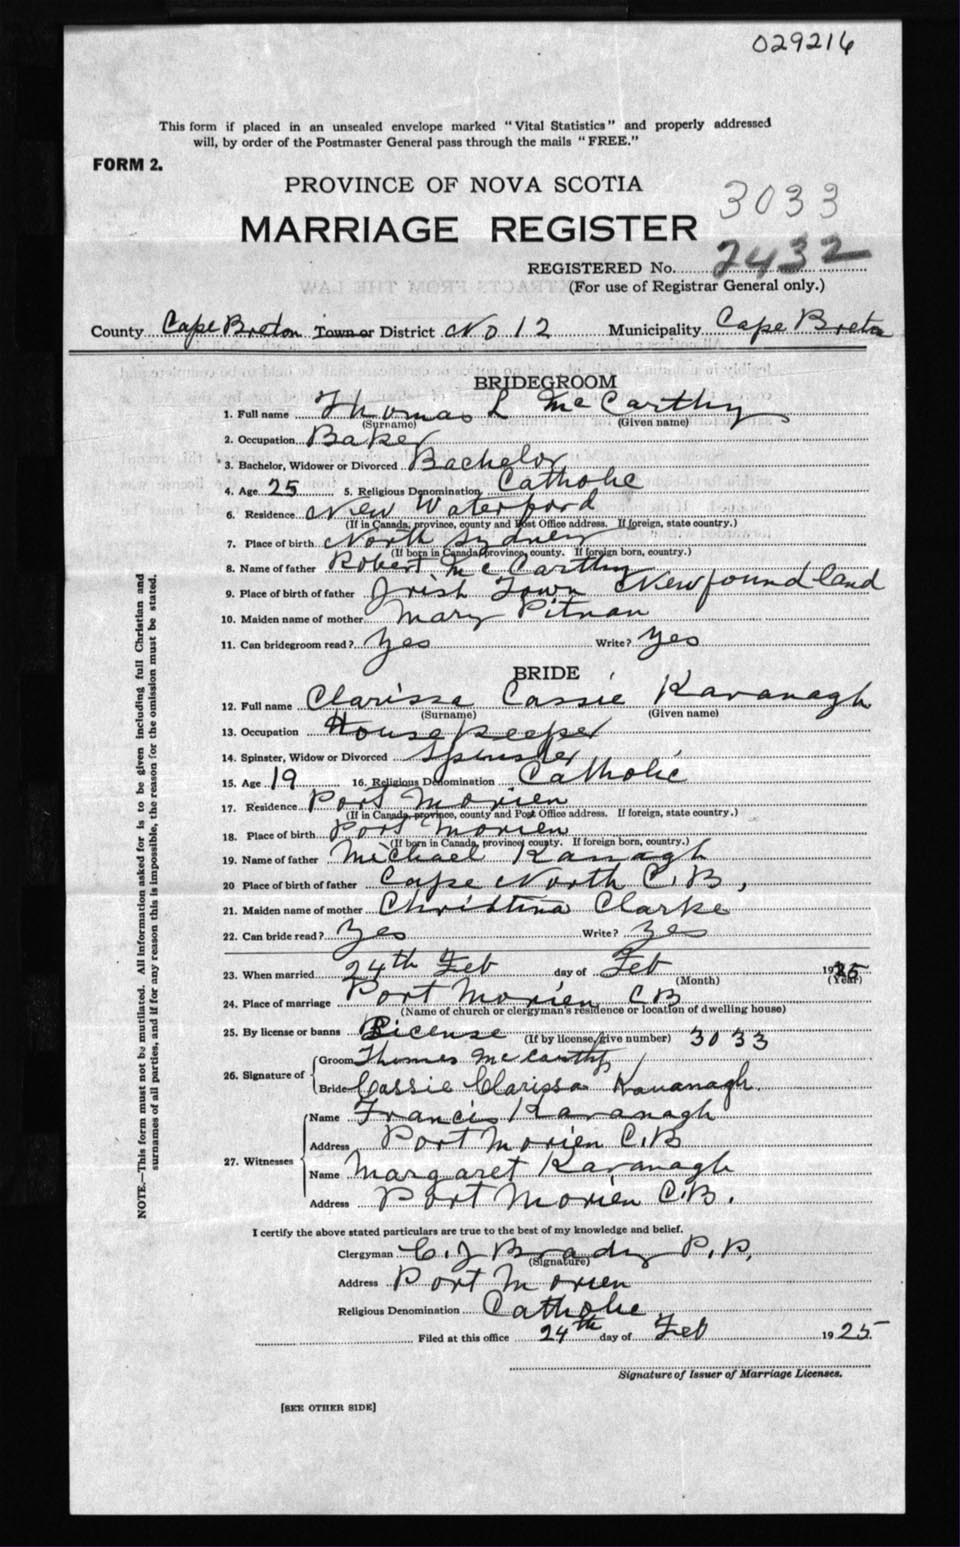 029216
This form if placed in an unsealed envelope marked "Vital Statistics" and properly addressed
will, by order of the Postmaster General pass through the mails "FREE."
FORM 2.
PROVINCE OF NOVA SCOTIA
3033
MARRIAGE REGISTER
REGISTERED No. 2432
(For use of Registrar General only.)
County Cape Breton Town or District No 12 Municipality Cape Breton
BRIDEGROOM
1. Full name Thomas L McCarthy
(Surname) (Given name)
2. Occupation Baker
*3. Bachelor, Widower or Divorced Bachelor
4. Age 25 5. Religious Denomination Catholic
6. Residence New Waterford
(If in Canada, province, county and Post Office address. If foreign, state country.)
7. Place of birth North Sydney
(If born in Canada, province, county. If foreign born, country.)
8. Name of father Robert McCarthy
9. Place of birth of father Irish Town Newfoundland
10. Maiden name of mother Mary Pitman
11. Can bridegroom read? Yes Write? Yes
BRIDE
12. Full name Clarissa Cassie Kavanagh
(Surname) (Given name)
13. Occupation Housekeeper
14. Spinster, Widow or Divorced Spinster
15. Age 19 16. Religious Denomination Catholic
17. Residence Port Morien
(If in Canada, province, county and Post Office address. If foreign, state country.)
18. Place of birth Port Morien
(If born in Canada, province, county. If foreign born, country.)
19. Name of father Michael Kanagh
20 Place of birth of father Cape North C.B,
21. Maiden name of mother Christina Clarke
22. Can bride read? Yes Write? Yes
23. When married 24th Feb day of Feb 1925
(Month) (Year)
24. Place of marriage Port Morien CB
(Name of church or clergyman's residence or location of dwelling house)
25. By license or banns License (If by license, give number) 3033
26. Signature of
Groom Thomas McCarthy
Bride Cassie Clarissa Kavanagh.
27. Witnesses
Name Francis Kavanagh
Address Port Morien C.B
Name Margaret Kavanagh
Address Port Morien C.B.
I certify the above stated particulars are true to the best of my knowledge and belief.
Clergyman C. J Brady P.P.
(Signature)
Address Port Morien
Religious Denomination Catholic
Filed at this office 24th day of Feb 1925
Signature of Issuer of Marriage Licenses.
[SEE OTHER SIDE]
NOTE.—This form must not be mutilated. All information asked for is to be given including full Christian and
surnames of all parties, and if for any reason this is impossible, the reason for the omission must be stated.